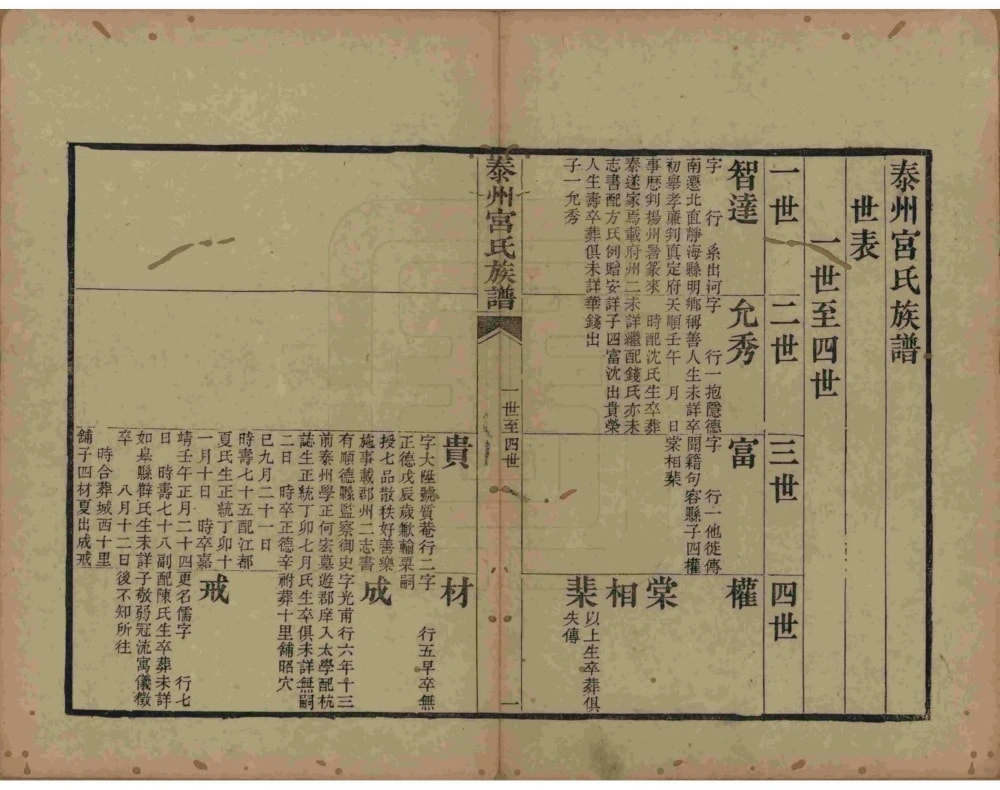 泰州宮氏族譜
世表
一世至四世
一世
二世
三世
四世
智達
字 行 系出河
南遷北直靜海縣明
初舉孝廉判真定府
事歷判揚州署篆來
泰遂家焉載府州二
志書配方氏例贈安
人生壽卒葬俱未詳
子一允秀
允秀
字 行一抱隱德
鄉稱善人生未詳卒
天順壬午 月 日
時配沈氏生卒葬
未詳繼配錢氏亦未
詳子四富沈出貴榮
華錢出
富
字 行一他徙傳
聞籍句容縣子四權
棠相棐
權
棠
相
棐
以上生卒葬俱
失傳
泰州宮氏族譜
一世至四世
一
貴
字大陞號質菴行二
正德戊辰歲歉輸粟
授七品散秩好善樂
施事載郡州二志書
有順德縣監察御史
前泰州學正何宏墓
誌生正統丁卯七月
二日 時卒正德辛
巳九月二十一日
時壽七十五配江都
夏氏生正統丁卯十
一月十日 時卒嘉
靖壬午正月二十四
日 時壽七十八副
如皋縣辥氏生未詳
卒 八月十二日
時合葬城西十里
舖子四材夏出成戒
材
字 行五早卒無
嗣
成
字光甫行六年十三
遊郡庠入太學配杭
氏生卒俱未詳無嗣
祔葬十里舖昭穴
戒
更名儒字 行七
配陳氏生卒葬未詳
子敬弱冠流寓儀徵
後不知所往